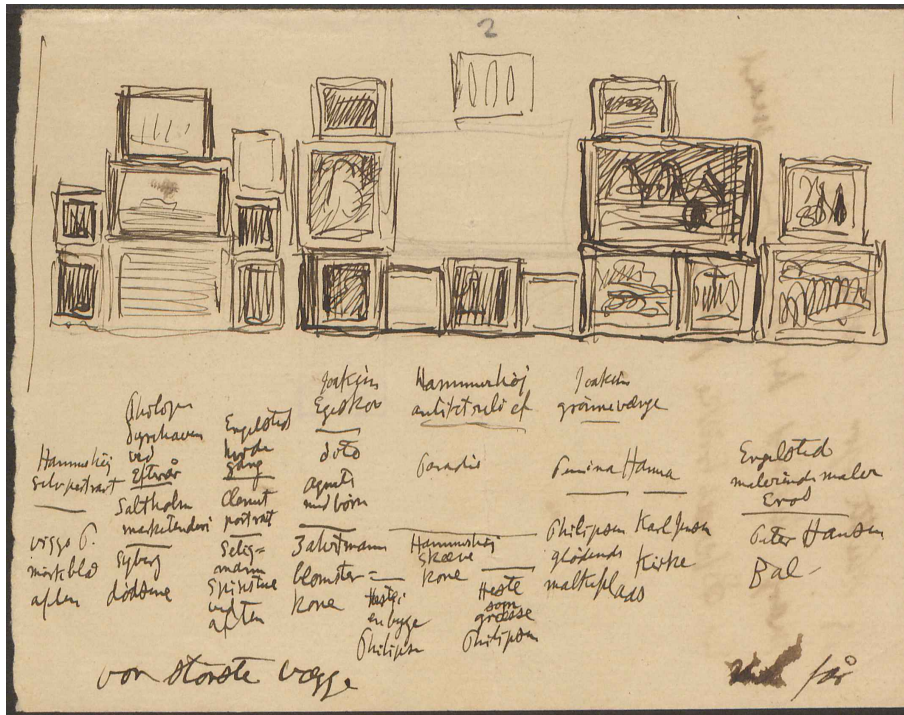 2
Hammershøj
selvportræt
viggo P.
mørkblå
aften
Dyrehaven
ved
Saltholm
marketenderi
Syberg
dødsene
Engelsted
Sang
Clemut
portræt
Selig=
mann
Spinstue
aften
Joakim
Egeskov
dito
agnete
med børn
Zahrtmann
blomster=
kone
Hammershøj
antikt relief
Paradis
Hammershøj
skæve
kone
Heste i
en byge
Philipsen
Heste
som
græsse
Philipsen
Joakim
grønneværge
Hanna
Philipsen
glødende
malkeplads
Karl Jensen
Kirke
Engelsted
malerinde maler
Erod
Peter Hansen
Bal
vor største vægge
får